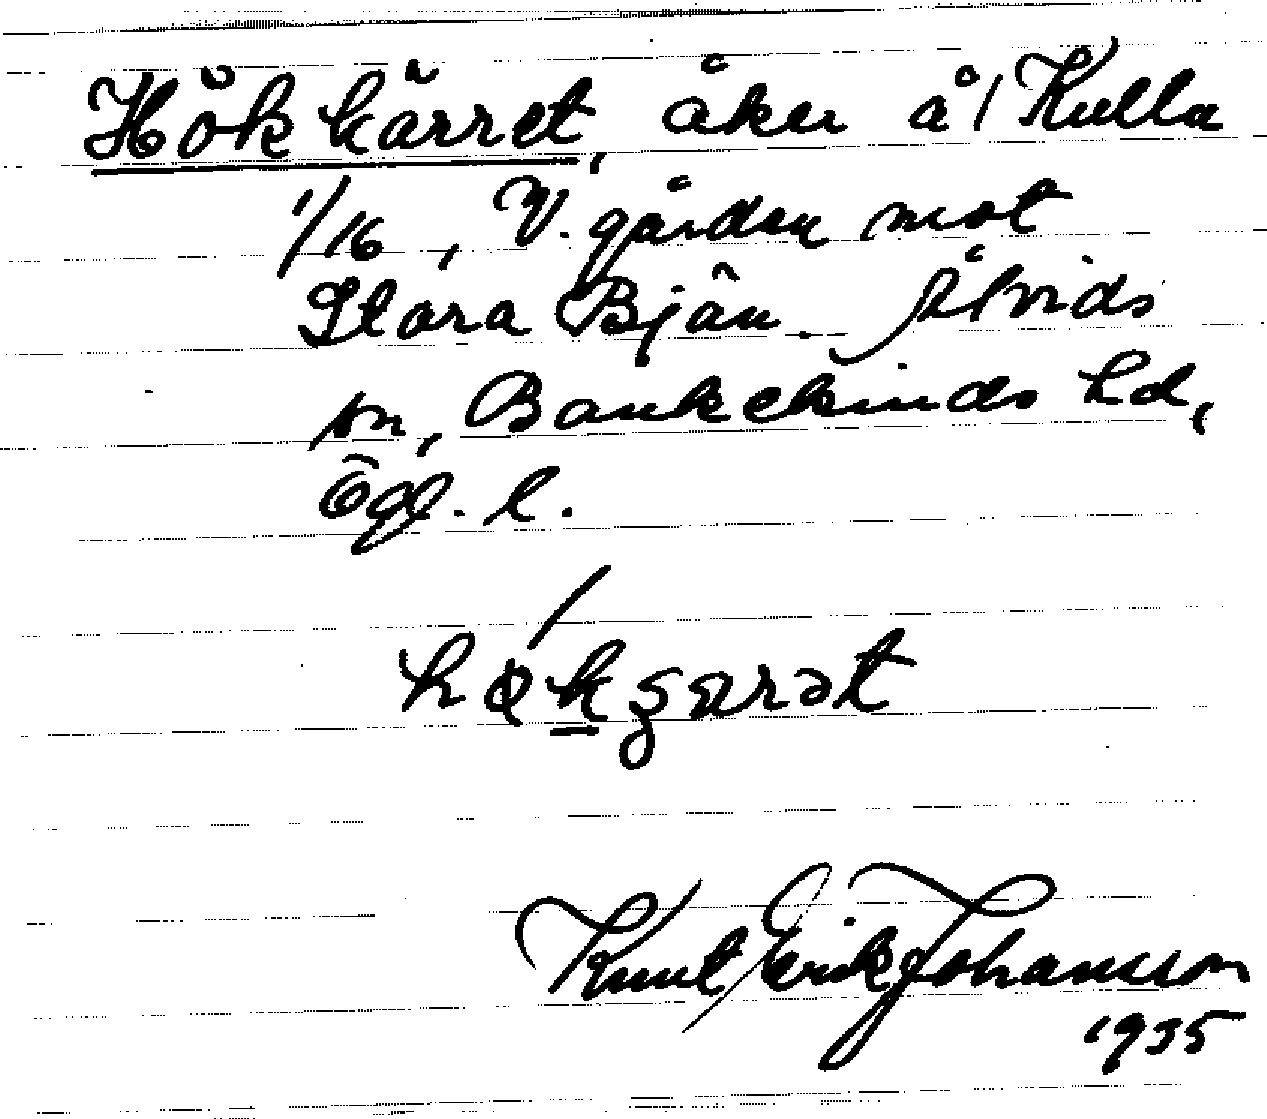 Hökkärret, åker å / Kulla
1/16, V. gården mot
Stora Bjän. Åtvids
sn, Bankekinds hd,
Ögl. l.
Knut Erik Johansson
1935